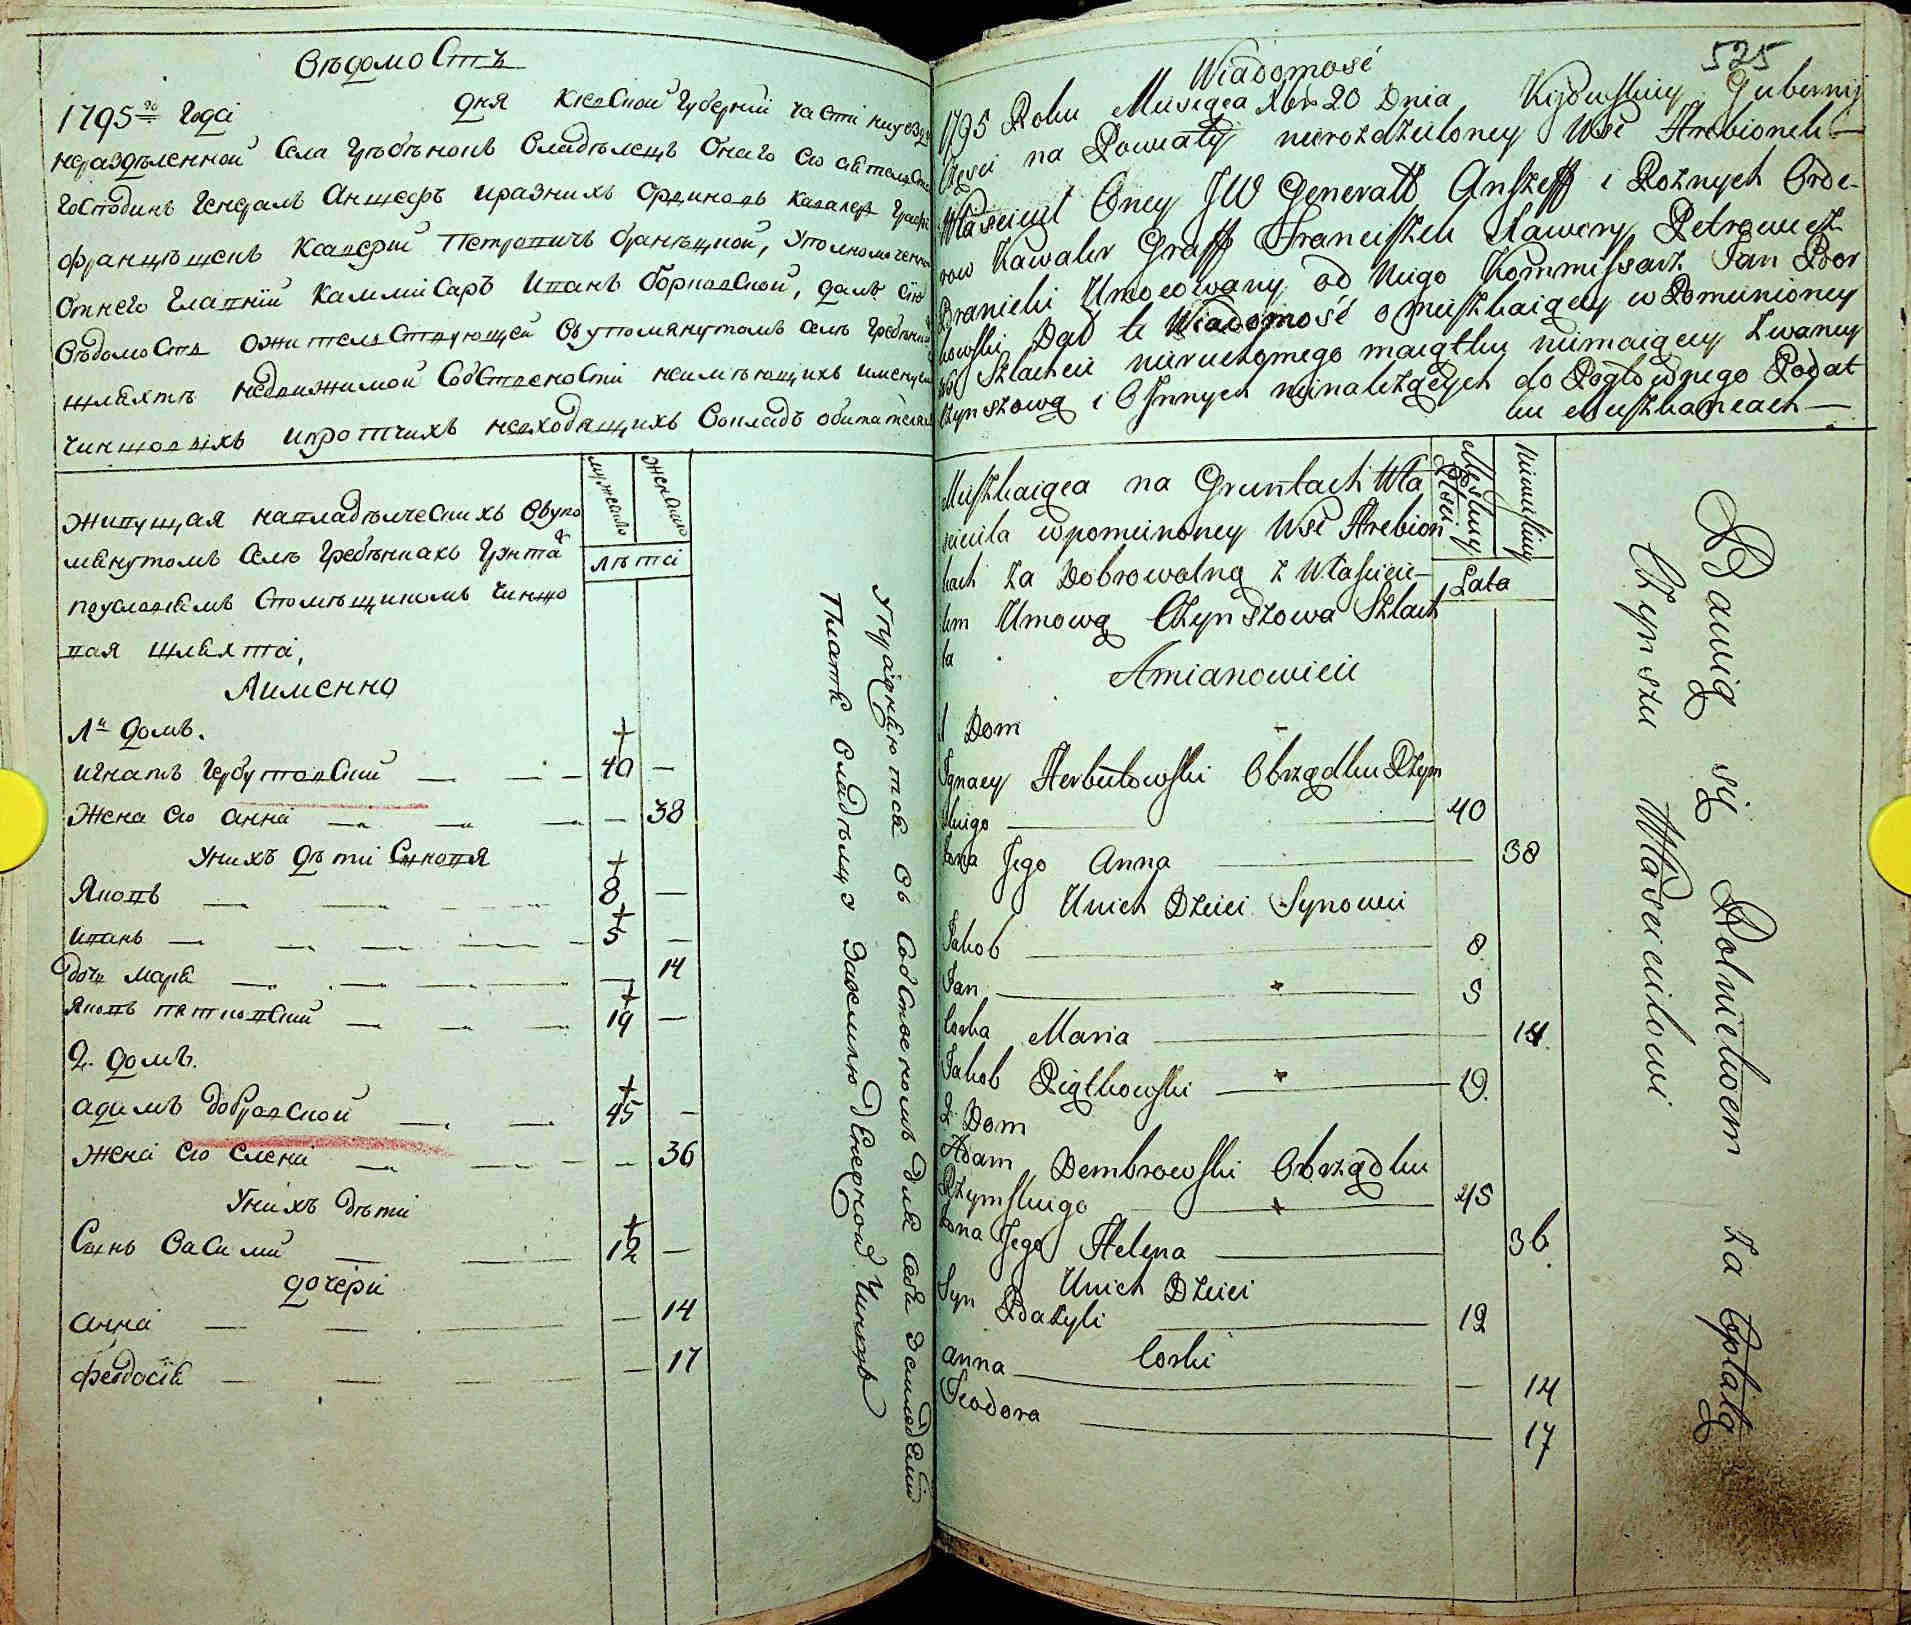 Вѣдомость
1795го Года дня Киевской Губерніи части на уезди
неразделенной Села Гребѣнокъ Владѣлецъ Онаго Сіо
Господинъ Генералъ Аншефъ и разнихъ Орденовъ Кавалер Графъ
Францѣшекъ Ксаверій Петровичъ Бранѣцкой, уполномоченны
Отнего Главній Каммисаръ Иванъ Борковской, далъ Сію
Вѣдомость Ожителствующей Въупомянутомъ Селѣ Гребѣнки
шляхтѣ недвижимой Собствености неимѣющихъ имену
Чиншовихъ ипротчихъ невходящихъ Вокладъ обитателях
мужеско
женско
лѣта
живущая навладѣлческихъ Въупо
мянутомъ Селѣ Гребѣнкахъ Грунта
поусловіямъ Спомѣщикомъ Чиншо
вая шляхта,
Аименно
1й домъ.
Игнатъ Гербутовский — — — 40 —
Жена его анна — — — — 38
Унихъ дѣти Синовя
Яковъ — — — — 8 —
Иванъ — — — — 5 —
дочь Марія — — — — — 14
Яковъ пятковский — — — 19 —
2. домъ.
адамъ добровской — — 45 —
жена его елена — — — — 36
Унихъ дѣти
Синъ Василий — — 12 —
дочери
анна — — — — 14
феодосія — — — — 17
Упражняются Въ Собственномъ для Себя Земледелии
Платя Владѣлцу Заземлю Ежегодной Чиншъ
525
Wiadomość
1795 Roku Miesiąca Xbra 20 Dnia Kijowskiey Gubernij
Części na Powiaty nierozdzieloney Wsi Hrebionek —
Właściciel Oney JW Generall Anszeff i Rożnych Orde-
row Kawaler Graff Franciszek Xawery Petrowicz
Branicki Umocowany od Niego Kommissarz Jan Bor
kowski Dał tę Wiadomość o mieszkaiącey w Pomienioney
wsi Szlachcie nieruchomego maiątku niemaiącey Zwaney
Czynszową i O Innych nienależących do Pogłownego Podat
ku Mieszkancach —
Męskiey
Płści
Niewieściey
Lata
Mieszkaiąca na Gruntach Wła
ściciela wpomienioney Wsi Hrebion
kach Za Dobrowolną Z Właścicie-
lem Umową Czynszowa Szlach
ta
A mianowicie
1 Dom
Ignacy Herbutowski Obrządku Rzym
skiego — 40
Żona Jego Anna — 38
Unich Dzieci Synowie
Jakob — 8
Jan — 5
Corka Maria — 14
Jakob Piątkowski — 19.
2. Dom
Adam Dembrowski Obrządku
Rzymskiego — 45
Żona Jego Helena — 36
Unich Dzieci
Syn Bazyli — 12
Corki
Anna — — 14
Teodora — 17
Bawią się Rolnictwem za Opłatą
Czynszu Właścicielowi